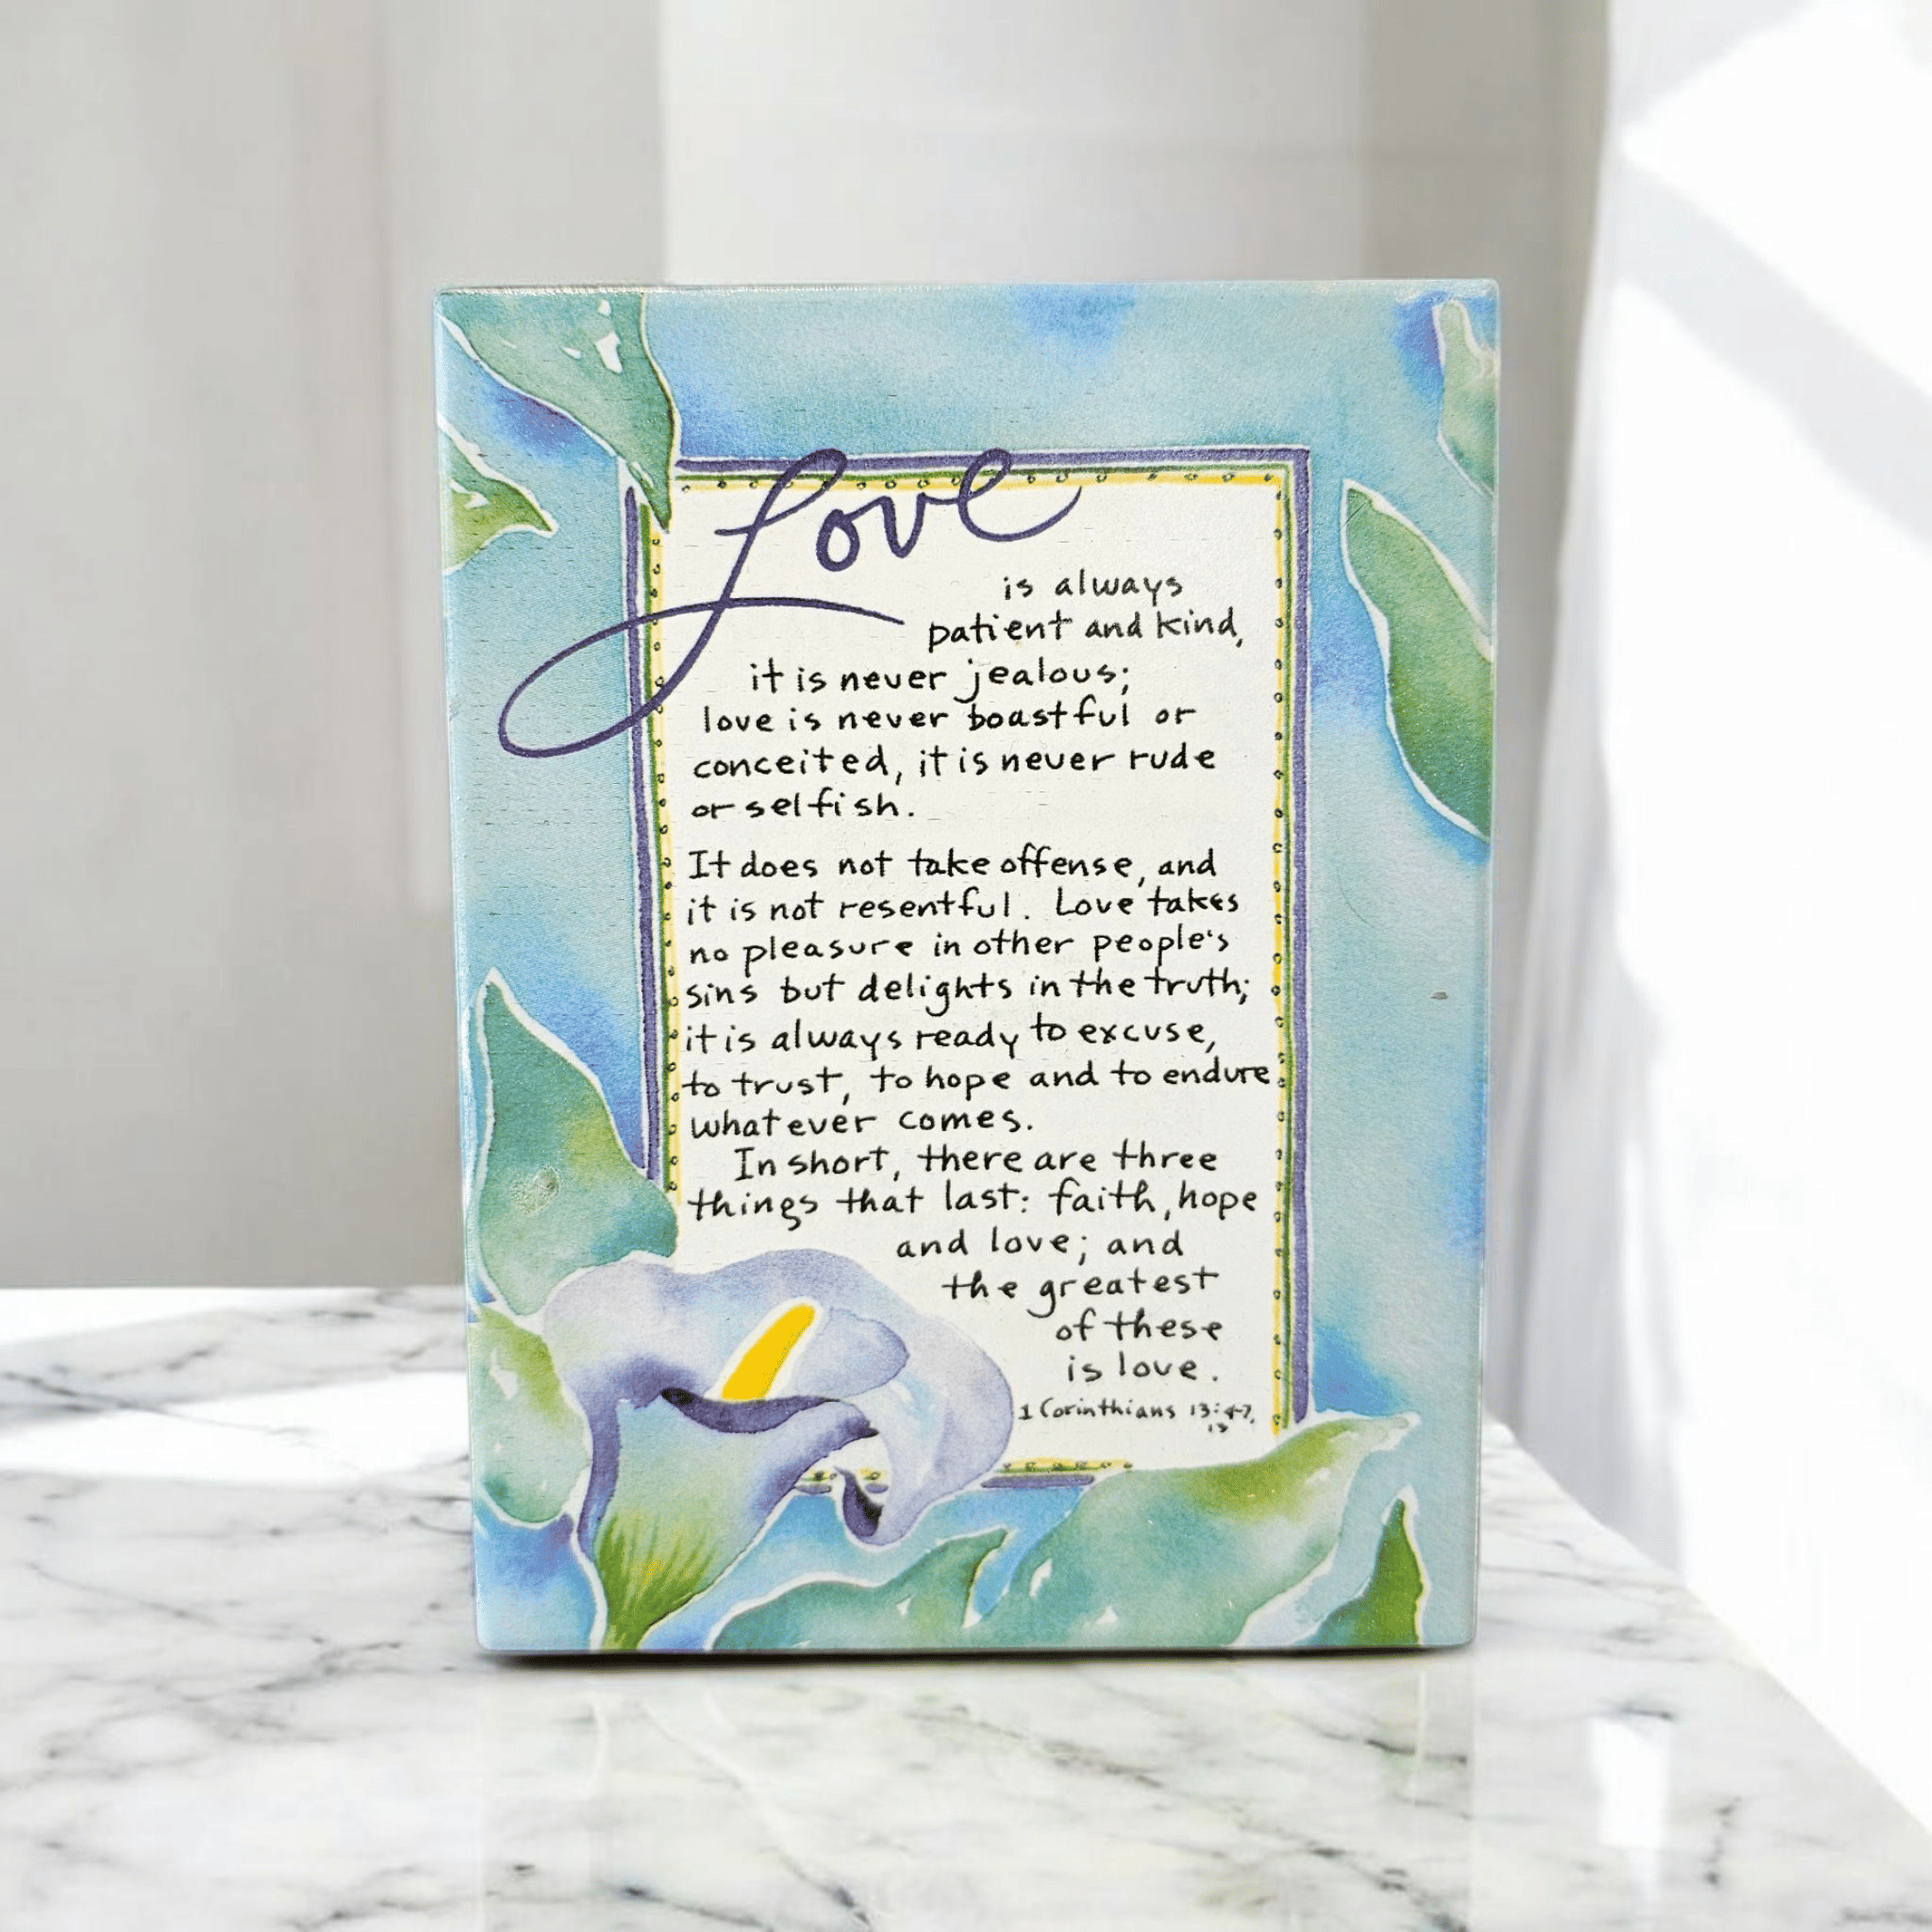 Love
is always
patient and kind,
it is never jealous;
love is never boastful or
conceited, it is never rude
or selfish.
It does not take offense, and
it is not resentful. Love takes
no pleasure in other people's
sins but delights in the truth;
it is always ready to excuse,
to trust, to hope and to endure
whatever comes.
In short, there are three
things that last: faith, hope
and love; and
the greatest
of these
is love.
1 Corinthians 13:4-7,
13